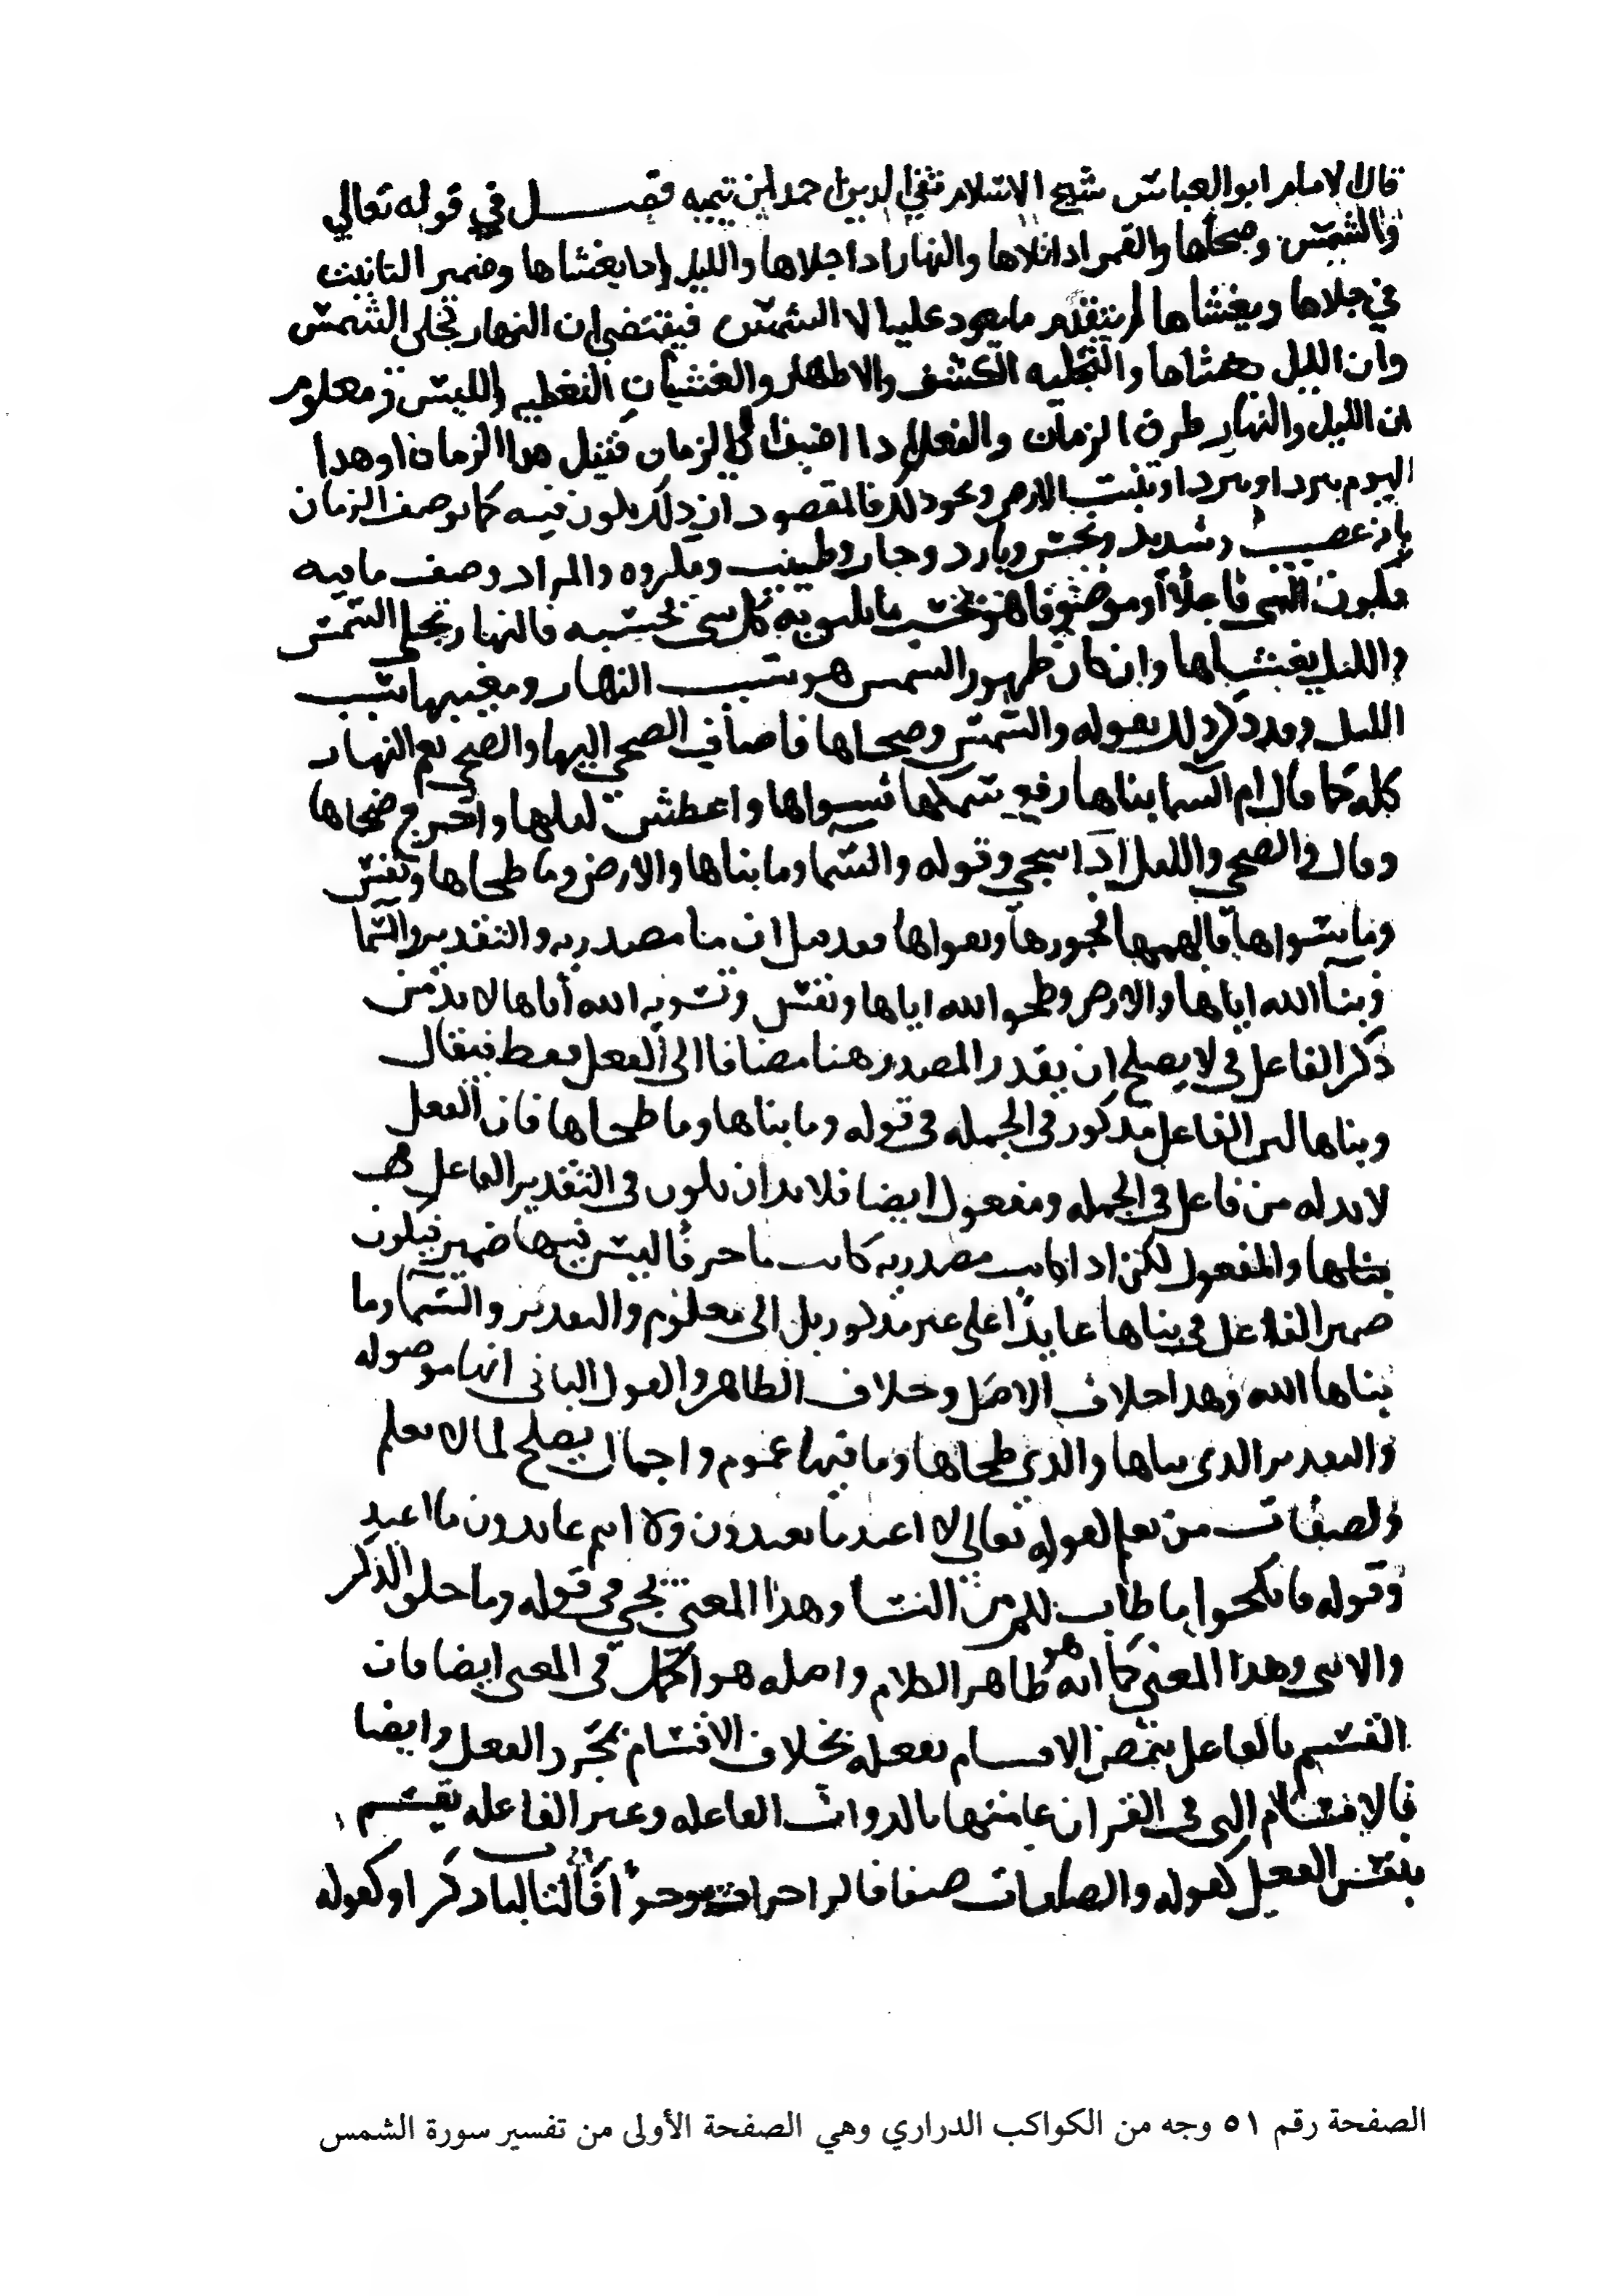 قال الامام ابو العباس شيخ الاسلام تقي الدين احمد ابن تيميه فصل في قوله تعالي
والشمس وضحاها والقمر اذا تلاها والنهار اذا جلاها والليل اذا يغشاها وضمير التانيث
في جلاها ويغشاها لم يتقدم ما يعود عليه الا الشمس فيقتضي ان النهار يجلي الشمس
وان الليل يغشاها والتجليه الكشف والاظهار والغشيان التغطيه واللبس ومعلوم
ان الليل والنهار ظرفا الزمان والفعل اذا اضيف الى الزمان فقيل هذا الزمان او هذا
اليوم يبرد او يبرد او ينبت الارض ونحو ذلك فالمقصود ان ذلك يكون فيه كما يوصف الزمان
بانه عصيب وشديد ونحس وبارد وحار وطيب ومكروه والمراد وصف ما فيه
فكون الشي فاعلا او موصوفا هو بحسب ما يليق به كل شي بحسبه فالنهار يجلي الشمس
والليل يغشاها وان كان ظهور الشمس هو سبب النهار ومغيبها سبب
الليل وقد ذكر ذلك بقوله والشمس وضحاها فاضاف الضحي اليها والضحي يعم النهار
كله كما قال ام السما بناها رفع سمكها فسواها واغطش ليلها واخرج ضحاها
وقال والضحي والليل اذا سجي وقوله والسما وما بناها والارض وما طحاها ونفس
وما سواها فالهمها فجورها وتقواها فقد قيل ان ما مصدريه والتقدير والسما
وبنا الله اياها والارض وطحو الله اياها ونفس وتسويه الله اياها لا بد من
ذكر الفاعل في لا يصلح ان يقدر المصدر هنا مضافا الى الفعل فقط فيقال
وبناها لان الفاعل مذكور في الجمله في قوله وما بناها وما طحاها فان الفعل
لا بد له من فاعل في الجمله ومفعول ايضا فلا بد ان يكون في التقدير الفاعل
بناها والمفعول لكن اذا كانت مصدريه كانت ما حرفا ليس فيها ضمير فيكون
ضمير الفاعل في بناها عايدا على غير مذكور بل الى معلوم والتقدير والسما وما
بناها الله وهذا خلاف الاصل وخلاف الظاهر والقول الثاني انها موصوله
والتقدير الذي بناها والذي طحاها وما فيها عموم واجمال يصلح لما لا يعلم
ولصفات من يعلم كقوله تعالي لا اعبد ما تعبدون ولا انتم عابدون ما اعبد
وقوله فانكحوا ما طاب لكم من النسا وهذا المعني يجي في قوله وما خلق الذكر
والانثى وهذا المعني كما انه هو ظاهر الكلام واصله هو اكمل في المعنى ايضا فان
القسم بالفاعل يتضمن الاقسام بفعله بخلاف الاقسام بمجرد الفعل وايضا
فالاقسام التى في القران عامتها بالذوات الفاعله وغير الفاعله يقسم
بنفس الفعل كقوله والصافات صفا فالزاجرات زجرا فالتاليات ذكرا وكقوله
الصفحة رقم ٥١ وجه من الكواكب الدراري وهي الصفحة الأولى من تفسير سورة الشمس